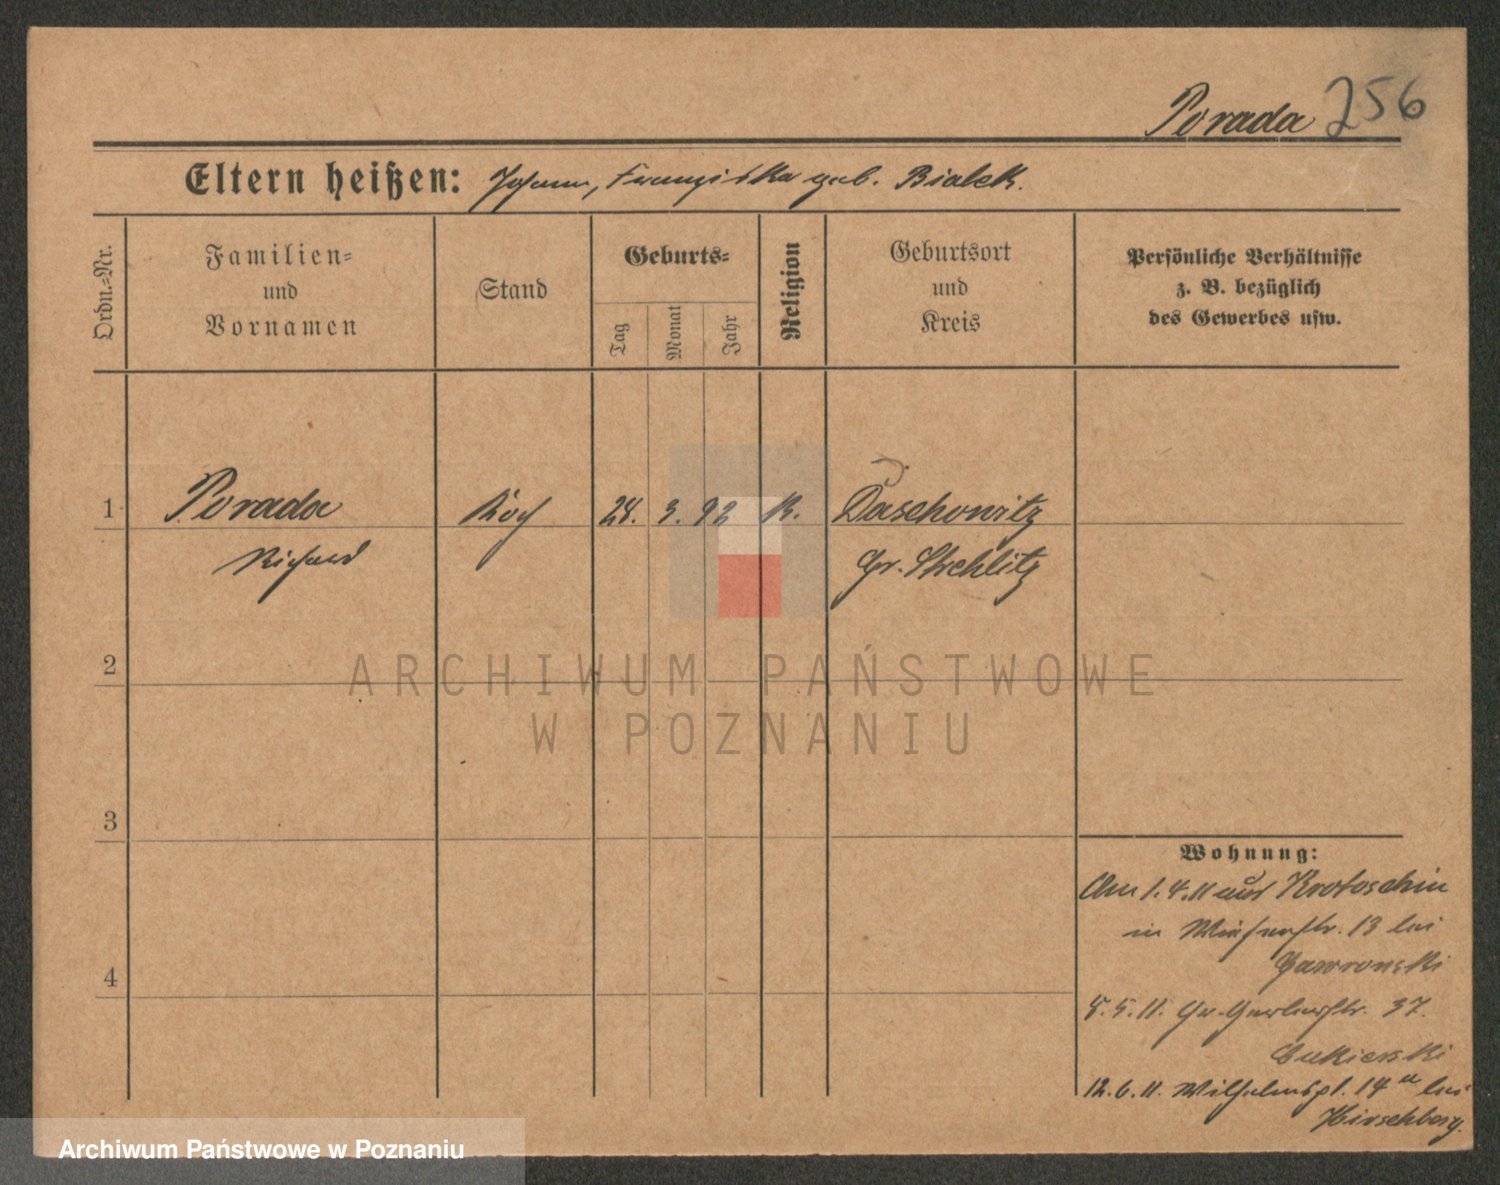 Porada 256
Eltern heißen: Johann, Franziska geb. Bialek.
Ordn.=Nr.
Familien=
und
Vornamen
Stand
Geburts=
Tag
Monat
Jahr
Religion
Geburtsort
und
Kreis
Persönliche Verhältnisse
z. B. bezüglich
des Gewerbes usw.
1 Porada Koch 28. 3. 92 K. Daschowitz
Richard Gr. Strehlitz
2
3
4
Wohnung:
Am 1.4.11 aus Krotoschin
in 13 bei
Gawronski
5.5.11. Gr. Gerberstr. 37.
Cukierski
12.6.11. Wilhelmspl. 14 a bei
Hirschberg.
ARCHIWUM PAŃSTWOWE
W POZNANIU
Archiwum Państwowe w Poznaniu